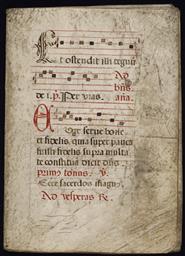 Et ostendit illi regnū
Ad
de i. p. Per vias. aña.
Uge serve bone
et fidelis, quia super pauca
fuisti fidelis supra multa
te constituā dicit dñs.
primus tonus. v.
Ecce sacerdos magn⁹
Ad vesperas